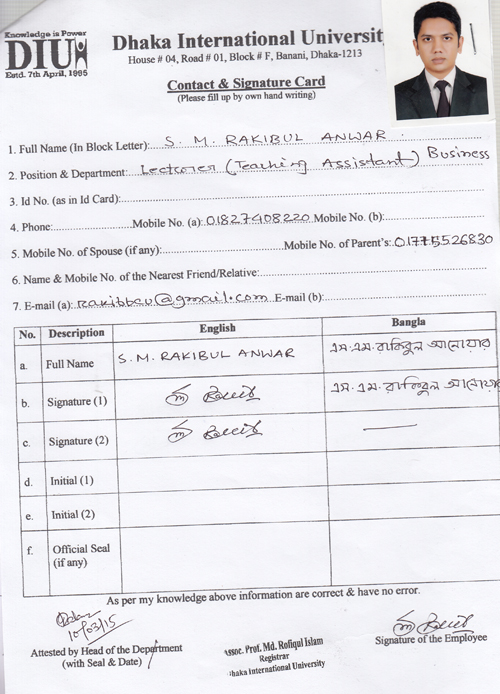 Knowledge is Power
DIU
Estd. 7th April, 1995
Dhaka International University
House # 04, Road # 01, Block # F, Banani, Dhaka-1213
Contact & Signature Card
(Please fill up by own hand writing)
1. Full Name (In Block Letter): S. M. RAKIBUL ANWAR
2. Position & Department: Lectcorer (Teaching Assistant) Business
3. Id No. (as in Id Card):
4. Phone: Mobile No. (a): 01827408220 Mobile No. (b):
5. Mobile No. of Spouse (if any): Mobile No. of Parent's: 01775526830
6. Name & Mobile No. of the Nearest Friend/Relative:
7. E-mail (a): rakibbcu@gmail.com E-mail (b):
No. Description English Bangla
a. Full Name S. M. RAKIBUL ANWAR এস.এম.রাকিবুল আনোয়ার
b. Signature (1) এস.এম.রাকিবুল আনোয়ার
c. Signature (2) —
d. Initial (1)
e. Initial (2)
f. Official Seal (if any)
As per my knowledge above information are correct & have no error.
10/03/15
Attested by Head of the Department
(with Seal & Date)
Assoc. Prof. Md. Rofiqul Islam
Registrar
Dhaka International University
Signature of the Employee